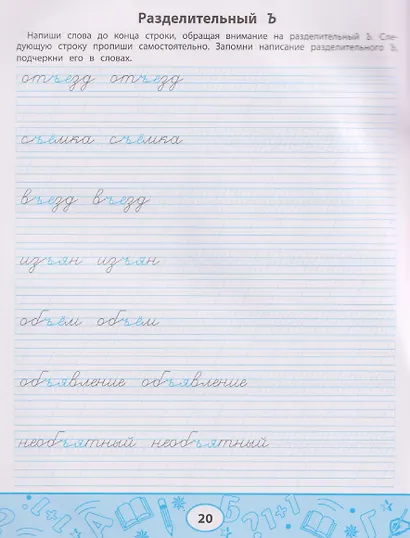 Разделительный Ъ
Напиши слова до конца строки, обращая внимание на разделительный Ъ. Сле-
дующую строку пропиши самостоятельно. Запомни написание разделительного Ъ,
подчеркни его в словах.
отъезд отъезд
съёмка съёмка
въезд въезд
изъян изъян
объём объём
объявление объявление
необъятный необъятный
20